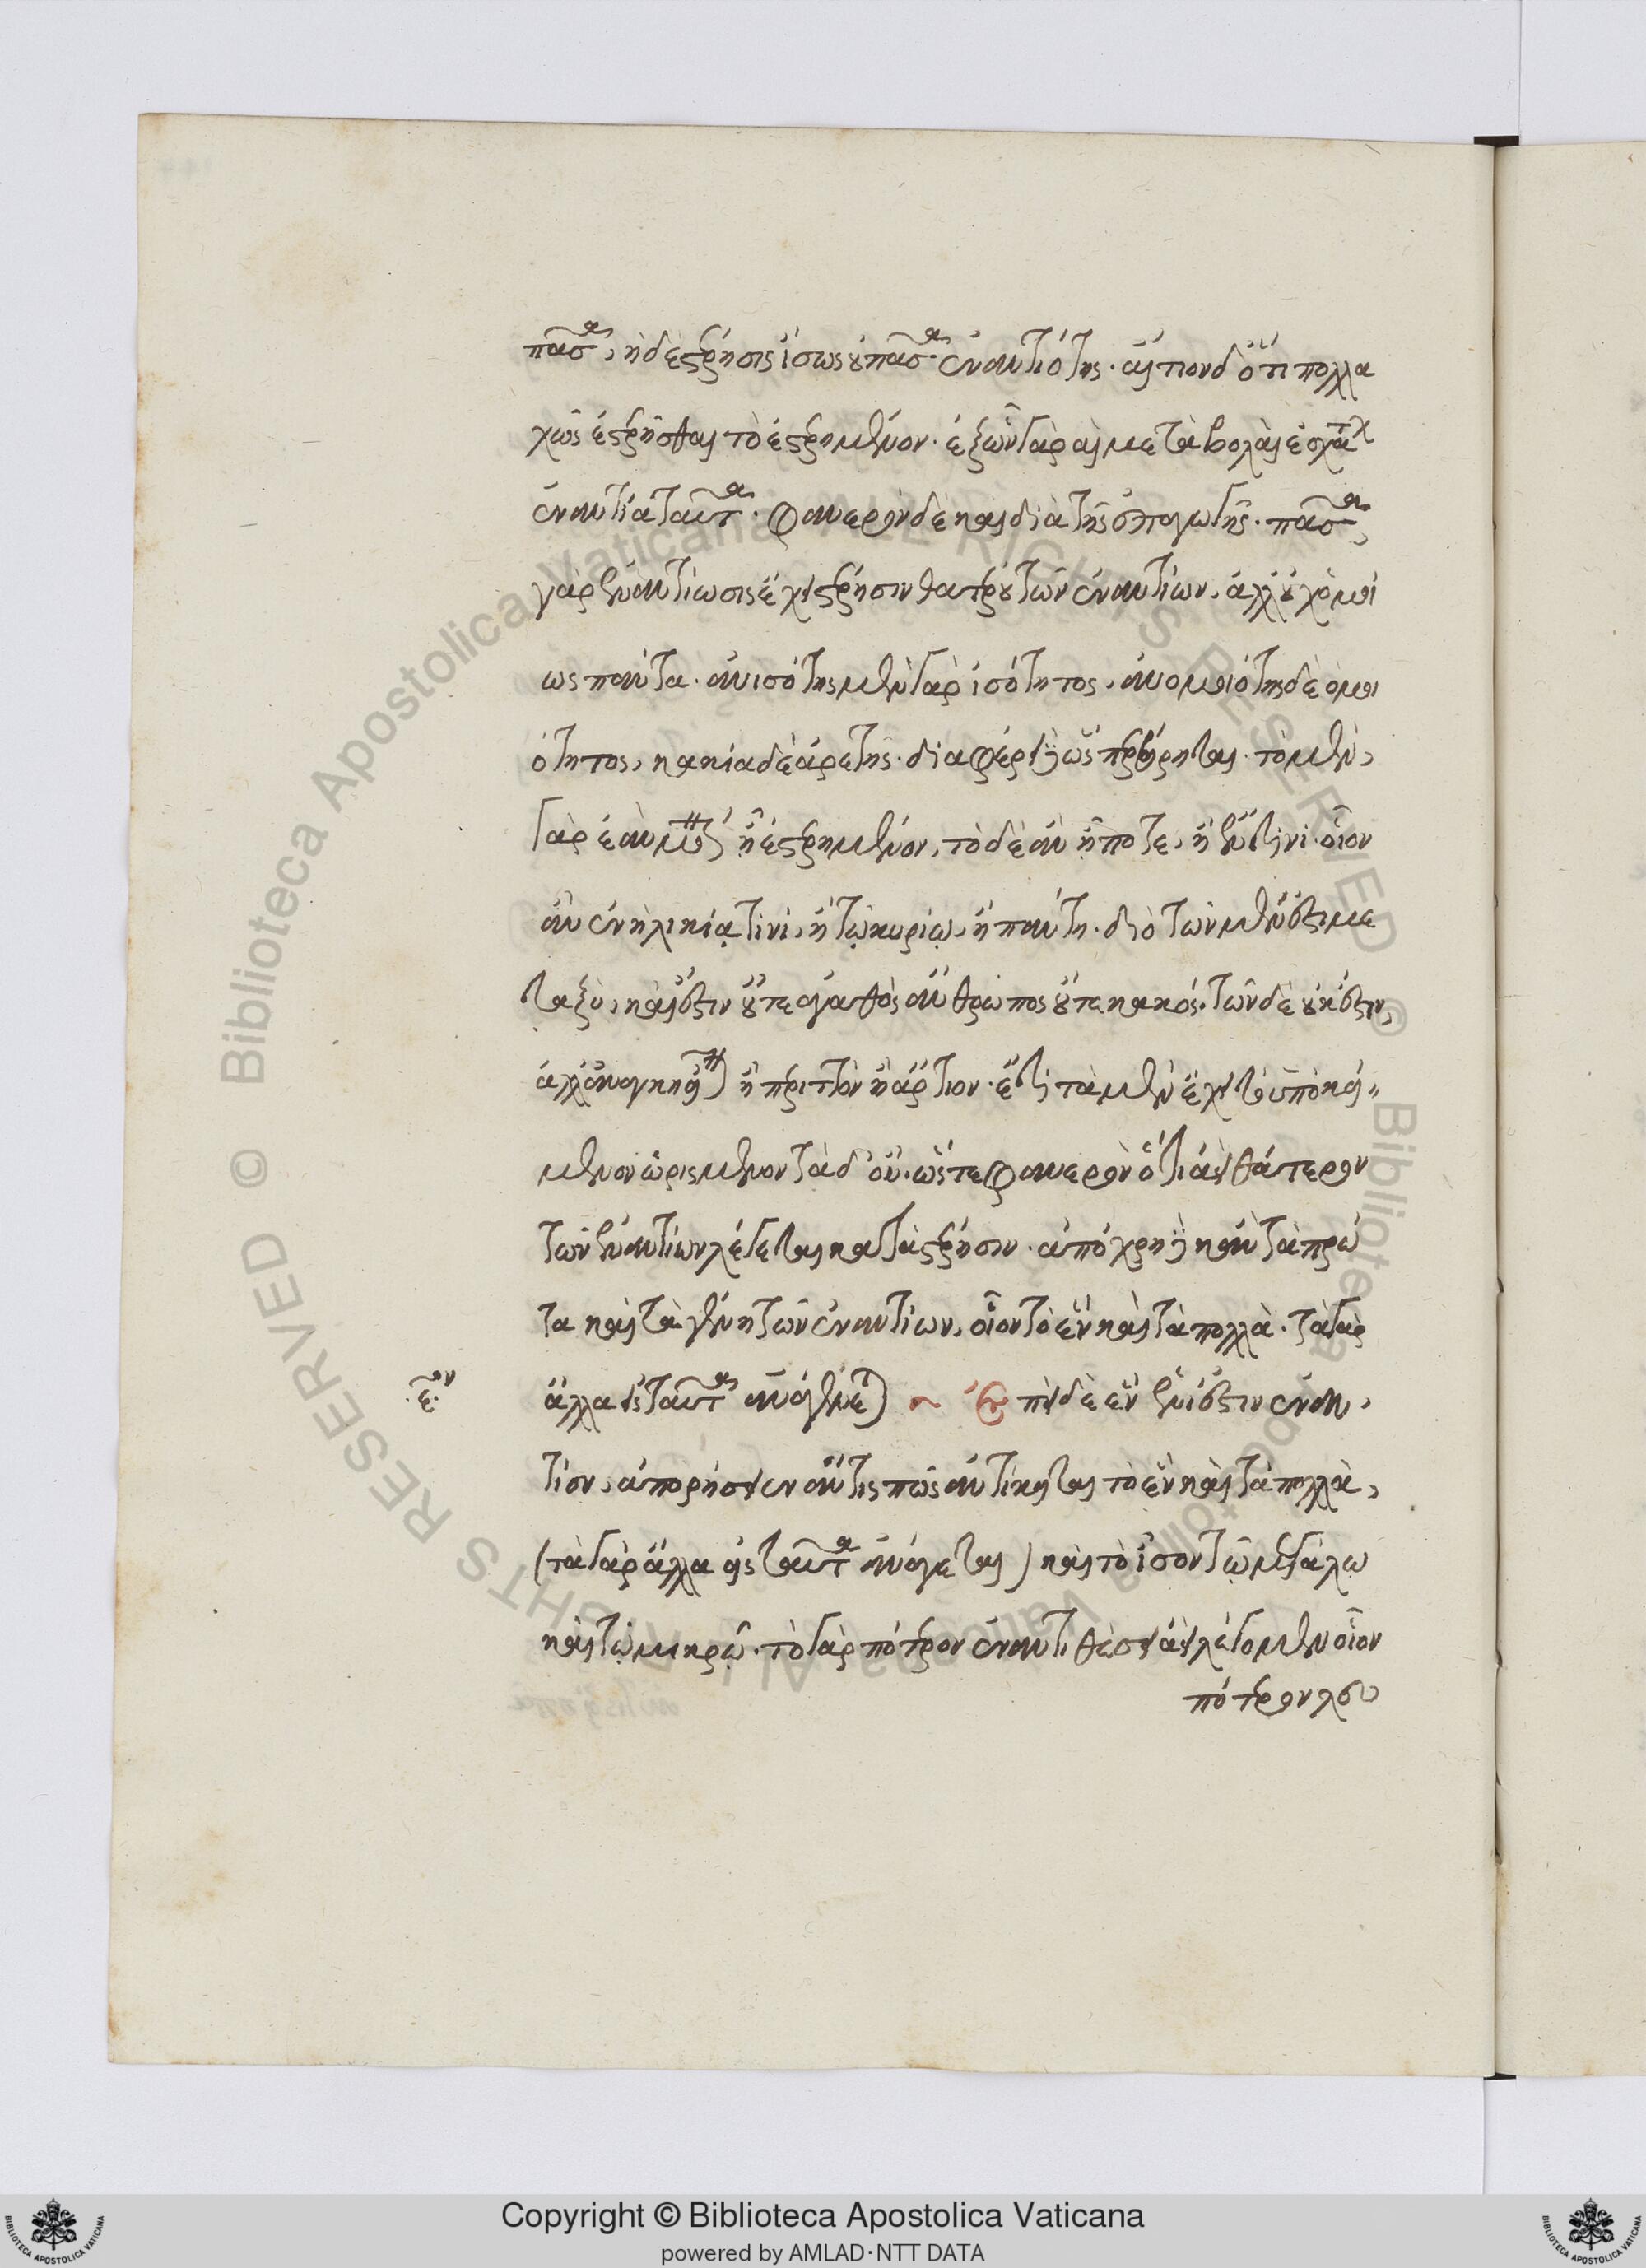 πᾶσα, ἡ δὲ στέρησις ἴσως οὐ πᾶσα ἐναντιότης. αἴτιον δ' ὅτι πολλα
χῶς ἐστερῆσθαι τὸ ἐστερημένον. ἐξ ὧν γὰρ αἱ μεταβολαὶ ἐσχάτων
ἐναντία ταῦτα. φανερὸν δὲ καὶ διὰ τῆς ἐπαγωγῆς. πᾶσα
γὰρ ἐναντίωσις ἔχει στέρησιν θατέρου τῶν ἐναντίων, ἀλλ' οὐχ ὁμοί
ως πάντα. ἀνισότης μὲν γὰρ ἰσότητος, ἀνομοιότης δὲ ὁμοι
ότητος, κακία δὲ ἀρετῆς. διαφέρει δὲ ὥσπερ εἴρηται. τὸ μὲν
γὰρ ἐὰν μόνον ᾖ ἐστερημένον, τὸ δὲ ἂν ᾖ ποτε, ἢ ἔν τινι. οἷον
ἂν ἐν ἡλικίᾳ τινί, ἢ τῷ κυρίῳ, ἢ πάντη. διὸ τῶν μὲν ἔστι με
ταξύ, καὶ ἔστιν οὔτε ἀγαθὸς ἄνθρωπος οὔτε κακός. τῶν δὲ οὐκ ἔστιν,
ἀλλ' ἀνάγκη εἶναι ἢ περιττὸν ἢ ἄρτιον. ἔτι τὰ μὲν ἔχει τὸ ὑποκεί
μενον ὡρισμένον τὰ δ' οὔ. ὥστε φανερὸν ὅτι ἀεὶ θάτερον
τῶν ἐναντίων λέγεται κατὰ στέρησιν. ἀπόχρη δὲ κἂν τὰ πρῶ
τα καὶ τὰ γένη τῶν ἐναντίων, οἷον τὸ ἓν καὶ τὰ πολλά. τὰ γὰρ
ἄλλα εἰς ταῦτα ἀνάγεται ~ Ἐπεὶ δὲ ἓν ἑνί ἐστιν ἐναν
τίον, ἀπορήσειεν ἄν τις πῶς ἀντίκειται τὸ ἓν καὶ τὰ πολλά,
(τὰ γὰρ ἄλλα εἰς ταῦτα ἀνάγεται) καὶ τὸ ἴσον τῷ μεγάλῳ
καὶ τῷ μικρῷ. τὸ γὰρ πότερον ἐν ἀντιθέσει ἀεὶ λέγομεν οἷον
πότερον λευ